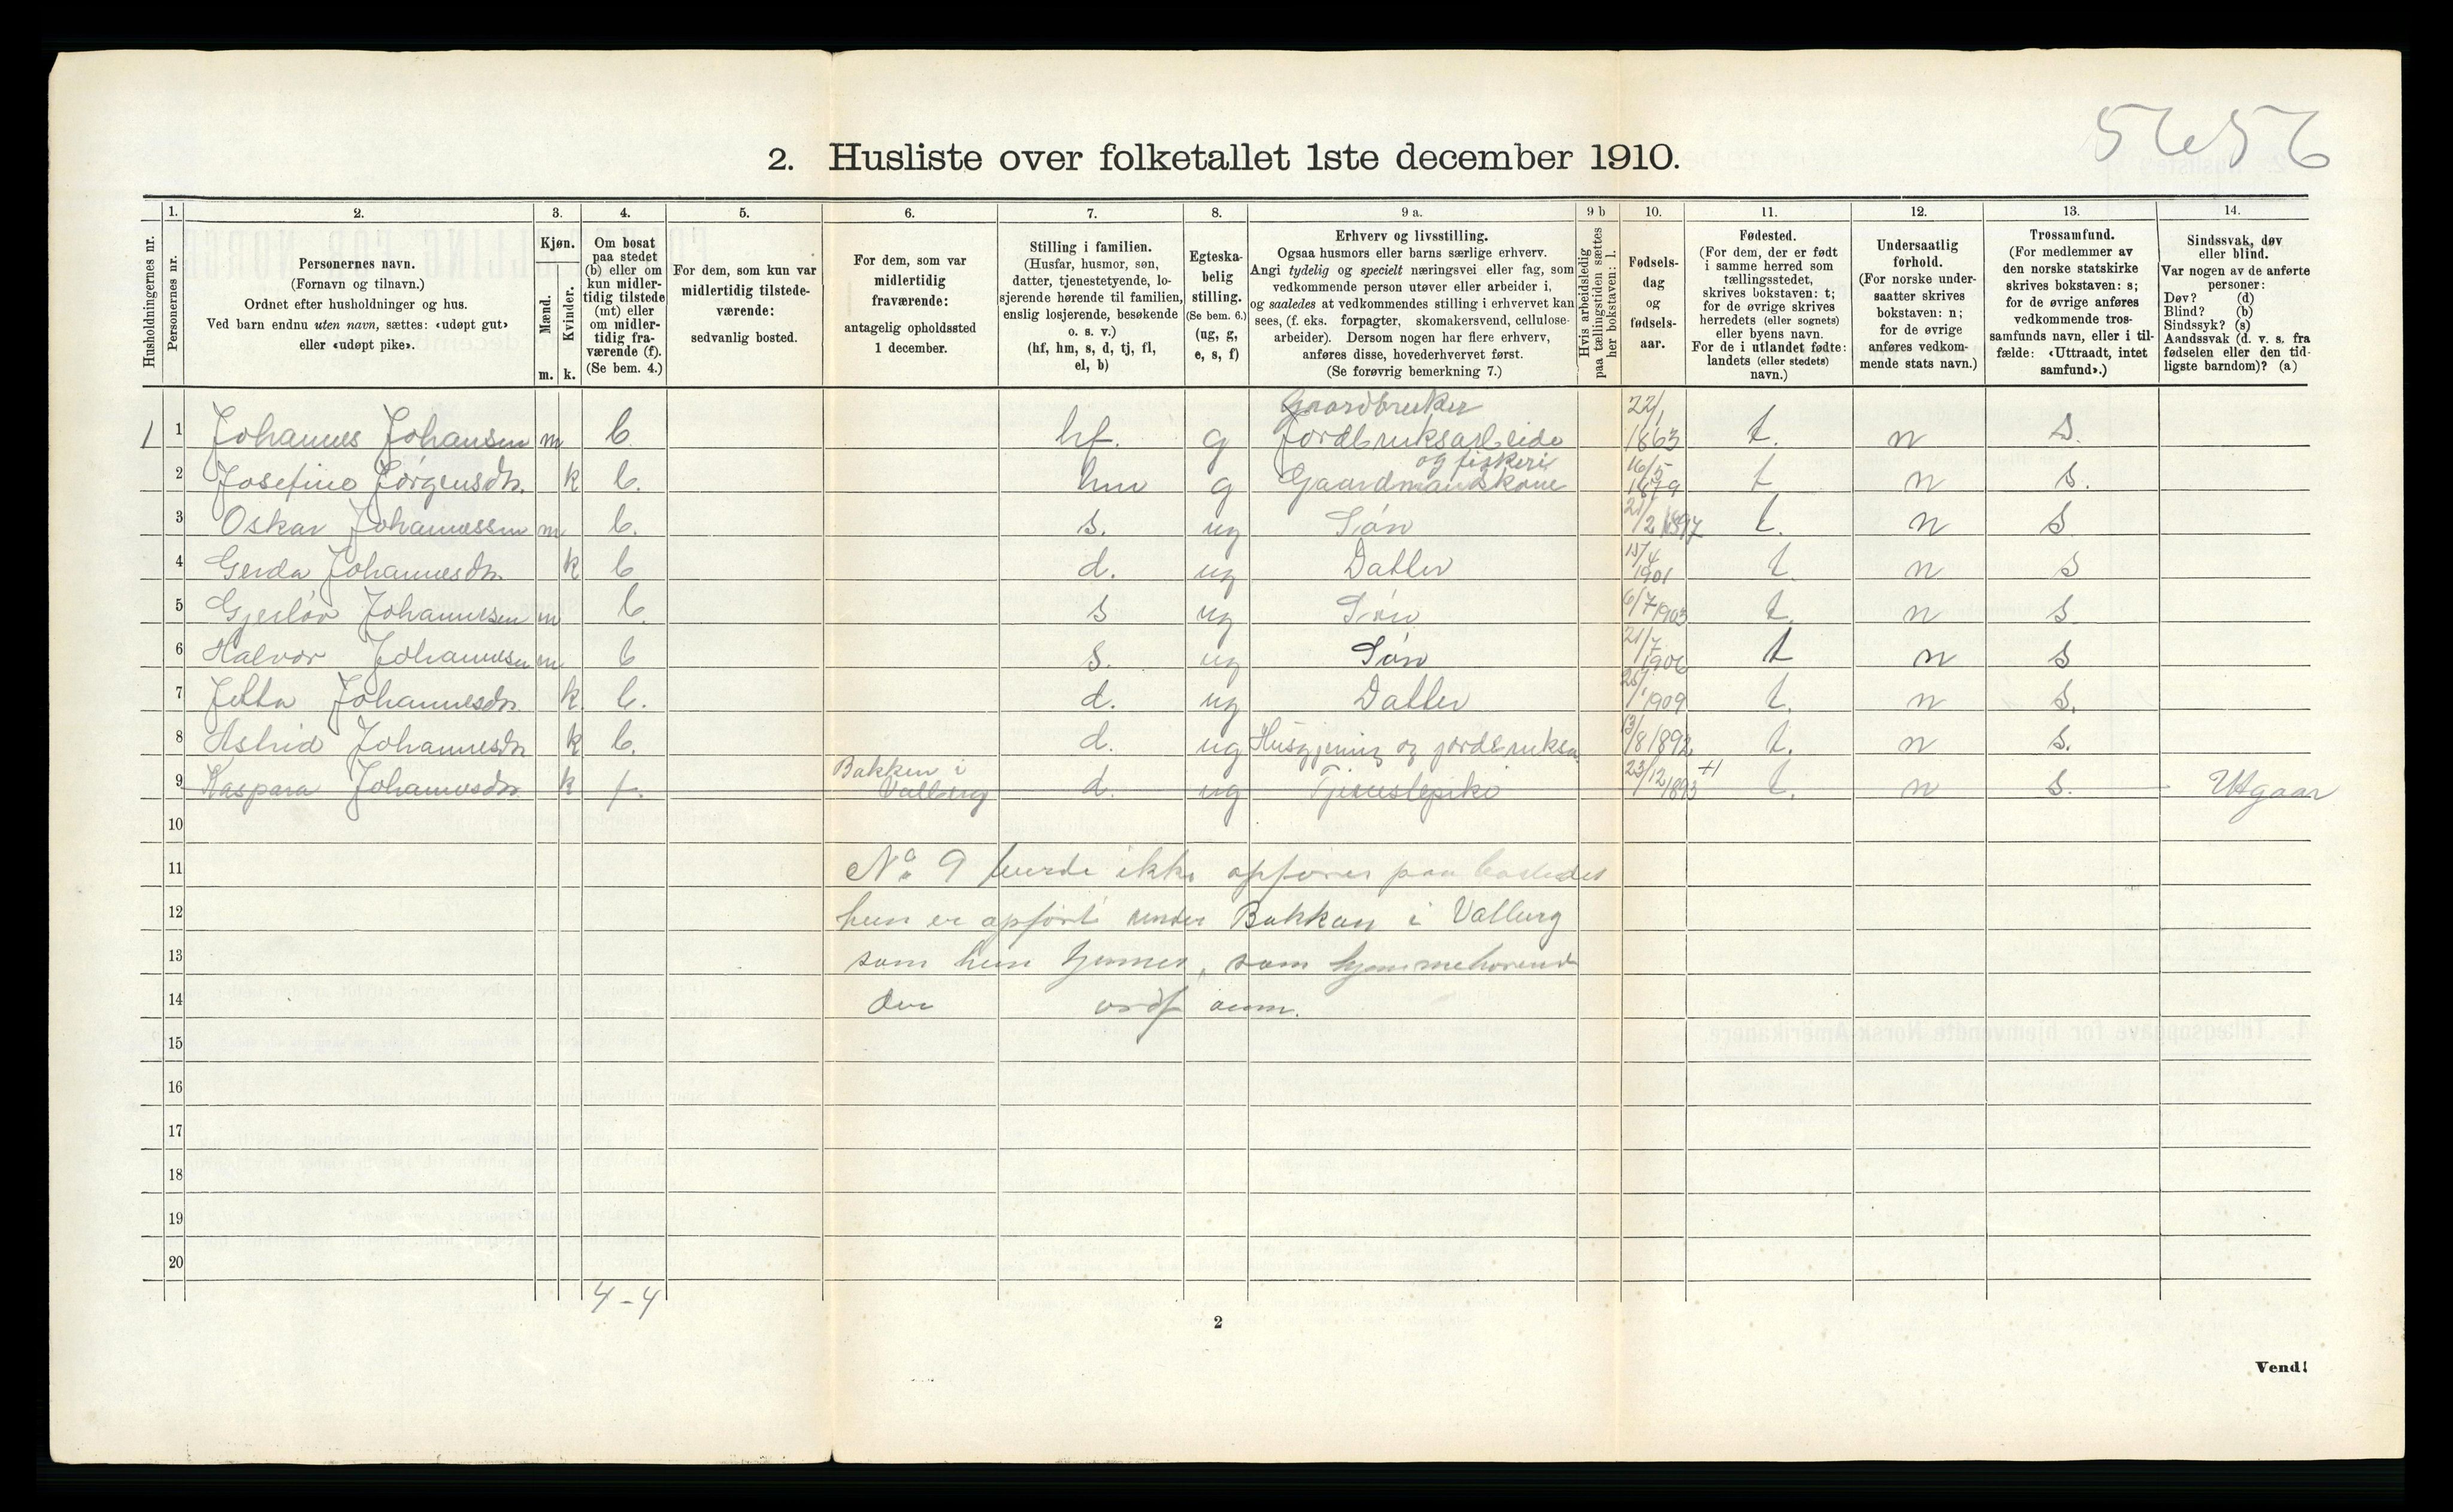 5656
2. Husliste over folketallet 1ste december 1910.
Husholdningernes nr.
1.
Personernes nr.
2.
Personernes navn.
(Fornavn og tilnavn.)
Ordnet efter husholdninger og hus.
Ved barn endnu uten navn, sættes: «udøpt gut»
eller «udøpt pike».
3.
Kjøn.
Mænd.
Kvinder.
m. k.
4.
Om bosat
paa stedet
(b) eller om
kun midler-
tidig tilstede
(mt) eller
om midler-
tidig fra-
værende (f).
(Se bem. 4.)
5.
For dem, som kun var
midlertidig tilstede-
værende:
sedvanlig bosted.
6.
For dem, som var
midlertidig
fraværende:
antagelig opholdssted
1 december.
7.
Stilling i familien.
(Husfar, husmor, søn,
datter, tjenestetyende, lo-
sjerende hørende til familien,
enslig losjerende, besøkende
o. s. v.)
(hf, hm, s, d, tj, fl,
el, b)
8.
Egteska-
belig
stilling.
(Se bem. 6.)
(ug, g,
e, s, f)
9 a.
Erhverv og livsstilling.
Ogsaa husmors eller barns særlige erhverv.
Angi tydelig og specielt næringsvei eller fag, som
vedkommende person utøver eller arbeider i,
og saaledes at vedkommendes stilling i erhvervet kan
sees, (f. eks. forpagter, skomakersvend, cellulose-
arbeider). Dersom nogen har flere erhverv,
anføres disse, hovederhvervet først.
(Se forøvrig bemerkning 7.)
9 b
Hvis arbeidsledig
paa tællingstiden sættes
her bokstaven: l.
10.
Fødsels-
dag
og
fødsels-
aar.
11.
Fødested.
(For dem, der er født
i samme herred som
tællingsstedet,
skrives bokstaven: t;
for de øvrige skrives
herredets (eller sognets)
eller byens navn.
For de i utlandet fødte:
landets (eller stedets)
navn.)
12.
Undersaatlig
forhold.
(For norske under-
saatter skrives
bokstaven: n;
for de øvrige
anføres vedkom-
mende stats navn.)
13.
Trossamfund.
(For medlemmer av
den norske statskirke
skrives bokstaven: s;
for de øvrige anføres
vedkommende tros-
samfunds navn, eller i til-
fælde: «Uttraadt, intet
samfund».)
14.
Sindssvak, døv
eller blind.
Var nogen av de anførte
personer:
Døv? (d)
Blind? (b)
Sindssyk? (s)
Aandssvak (d. v. s. fra
fødselen eller den tid-
ligste barndom)? (a)
Gaardbruker
1 1 Johannes Johansen m b hf. g Jordbruksarbeide 22/1 1863 t. n s.
og fiskeri
2 Josefine Jørgensdr. k b. hm g Gaardmandskone 16/5 1879 t n s.
3 Oskar Johannessen m b. s. ug Søn 21/2 1897 t. n s
4 Gerda Johannesdr. k b d. ug Datter 15/4 1901 t. n s
5 Gjerløv Johannesen m b. s ug Søn 6/7 1903 t. n s
6 Halvor Johannesen m b s. ug Søn 21/7 1906 t n s
7 Jetta Johannesdr. k b. d. ug Datter 1909 t. n s.
8 Astrid Johannesdr k b. d. ug Husgjerning og jordbruksa. 13/8 1892 t. n s.
9 Kaspara Johannesdr. k f. Bakken i Valberg d. ug Tjenestepike 23/12 1893 +1 t. n s. Utgaar
10
11 No. 9 burde ikke opføres paa bostedet
12 hun er opført under Bakkan i Valberg
13 som hun tjener, som hjemmehørende
14 der ordf anm.
15
16
17
18
19
20
4-4
2
Vend!